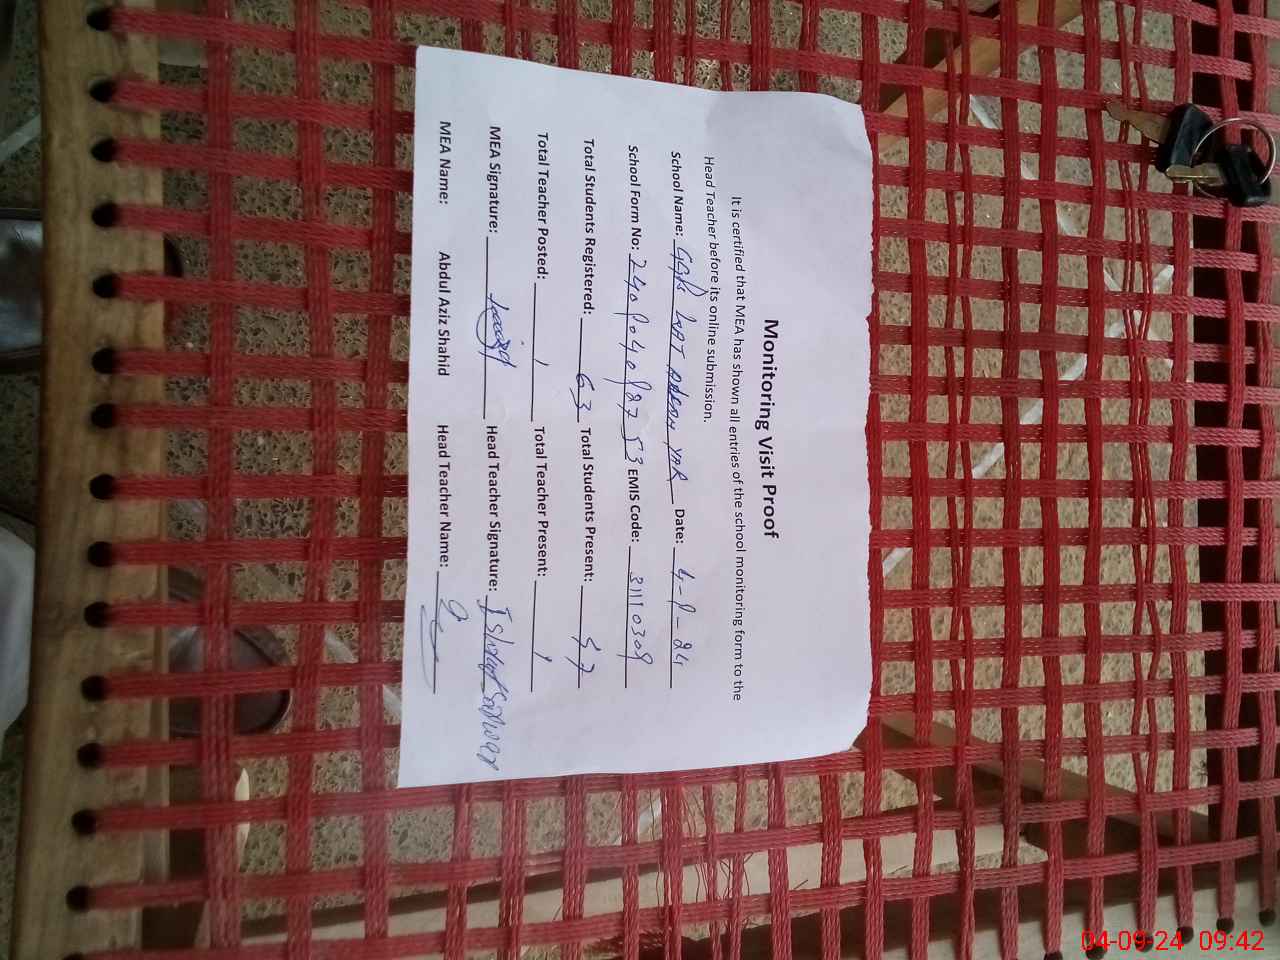 Monitoring Visit Proof
It is certified that MEA has shown all entries of the school monitoring form to the
Head Teacher before its online submission.
School Name: YAR Date: 4-9-24
School Form No: EMIS Code: 31110309
Total Students Registered: 63 Total Students Present: 57
Total Teacher Posted: 1 Total Teacher Present: 1
MEA Signature: Head Teacher Signature:
MEA Name: Abdul Aziz Shahid Head Teacher Name:
04-09-24 09:42